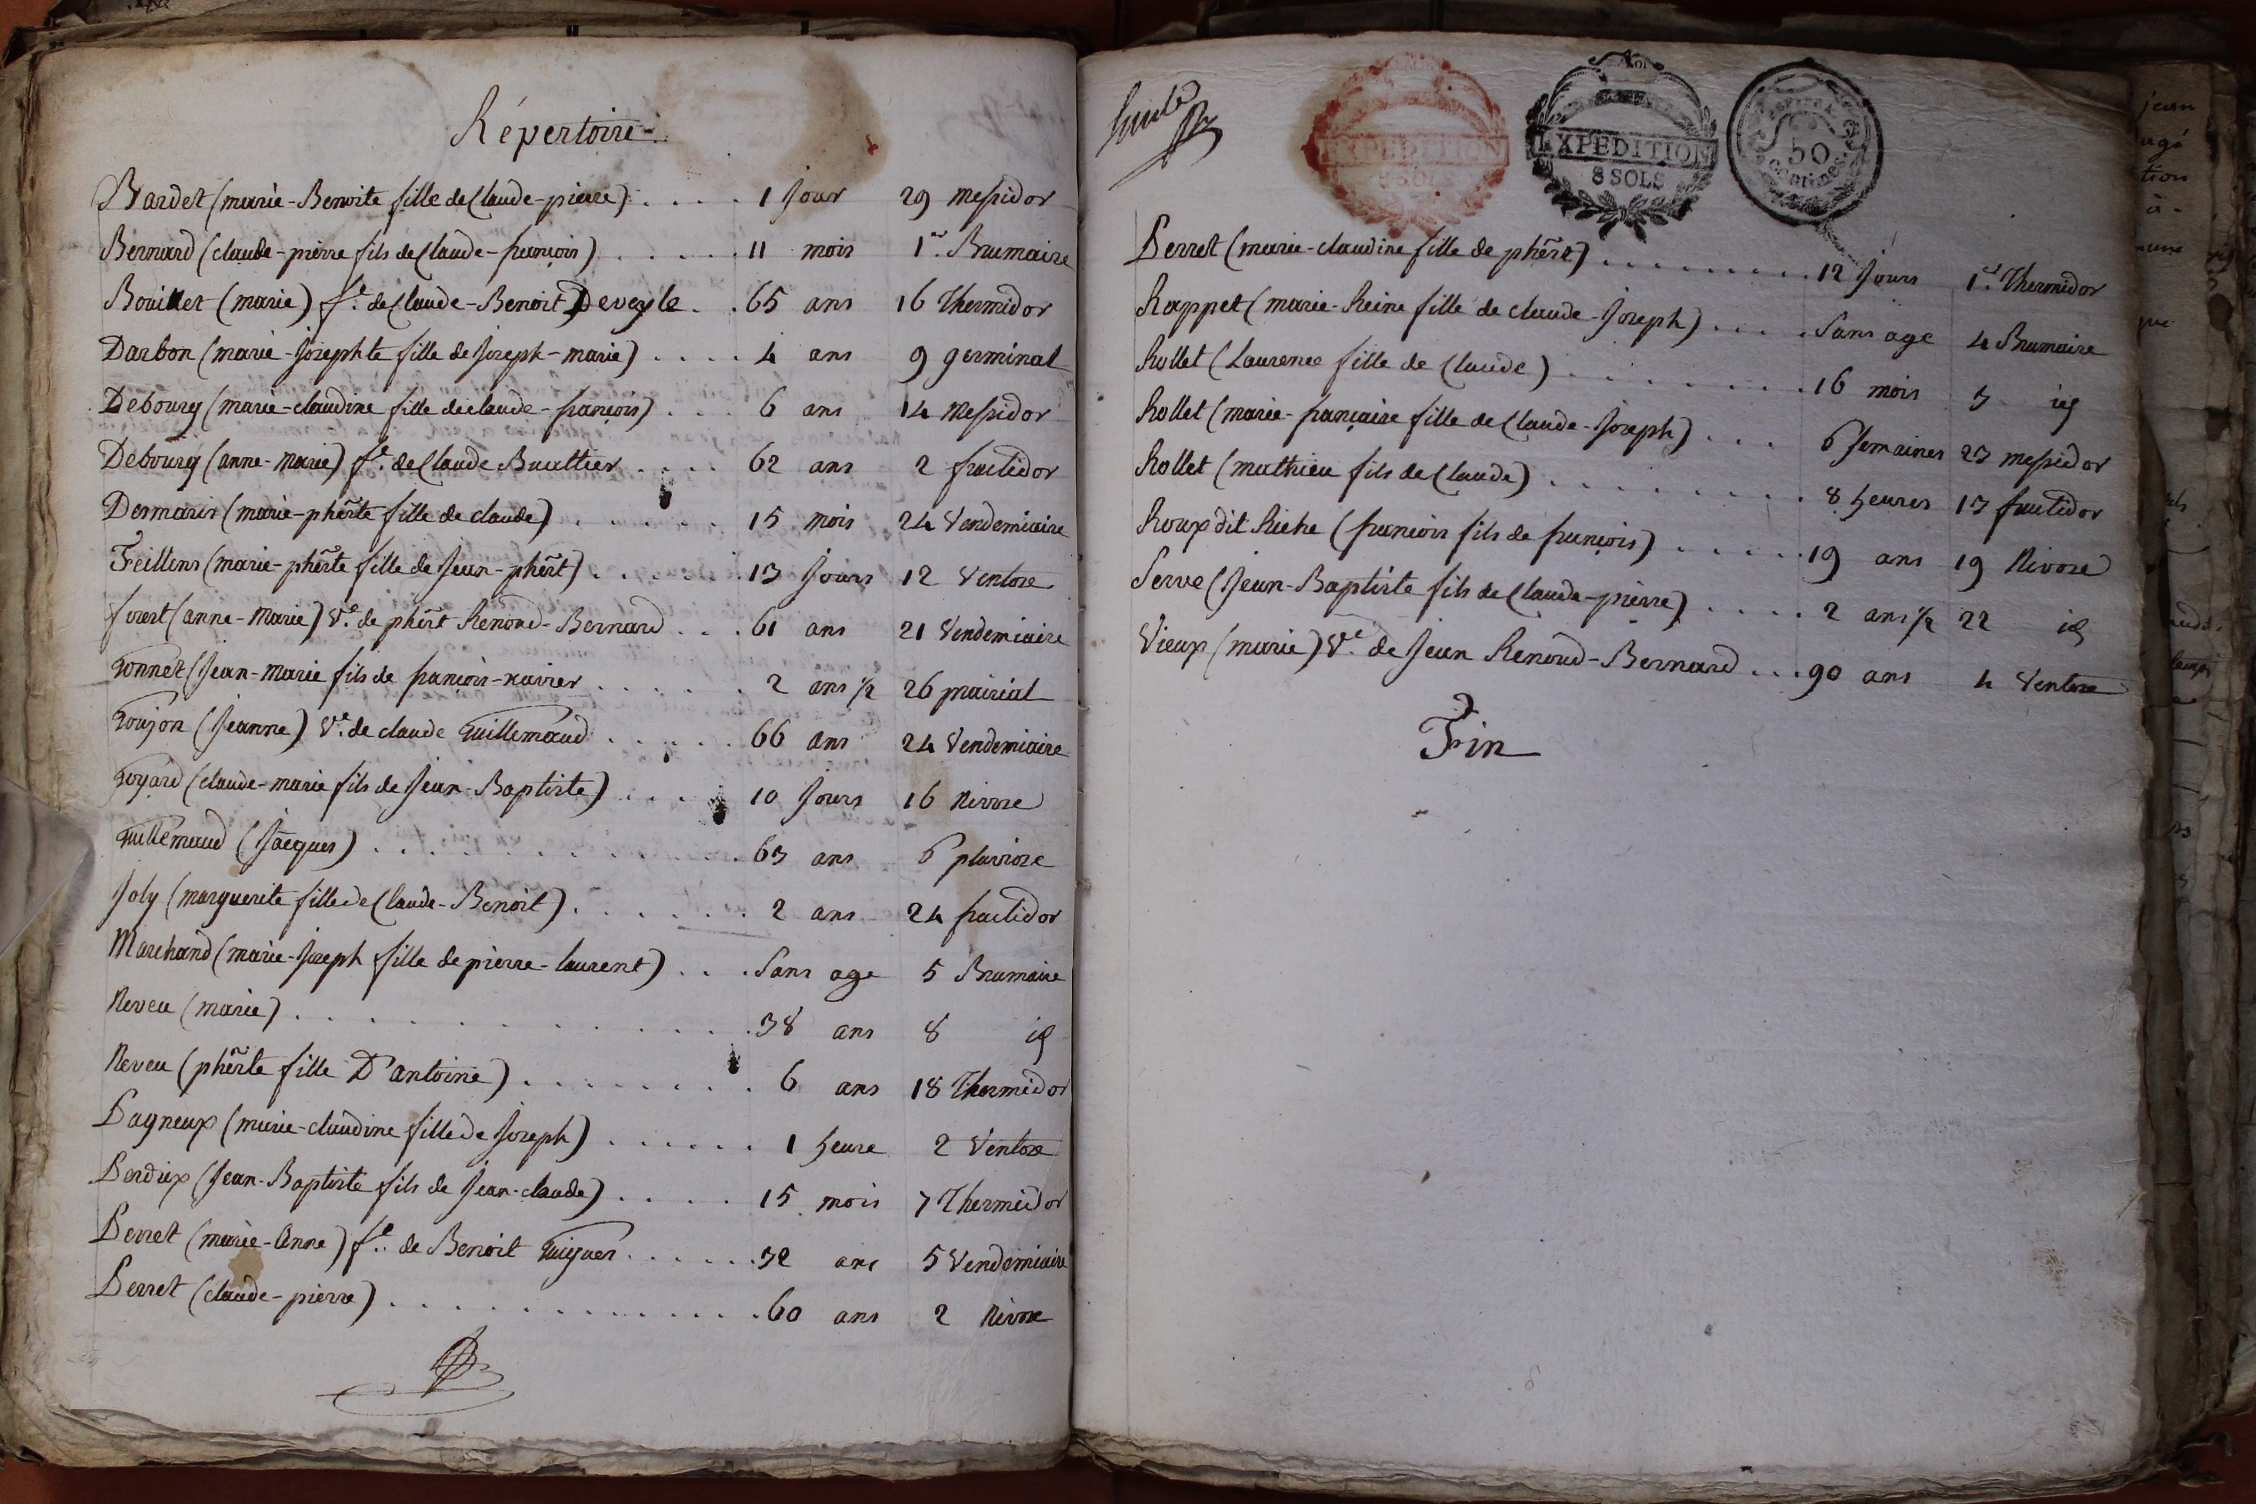 Répertoire
Bardet (marie-Benoite fille de Claude-pierre) . . . . 1 Jour 29 Messidor
Bernard (claude-pierre fils de Claude-françois) . . . . . . 11 mois 1er. Brumaire
Bouillet (marie) fe. de Claude-Benoit Deveyle . . 65 ans 16 Thermidor
Darbon (marie-Josephte fille de Joseph-marie) . . . . 4 ans 9 germinal
Debourg (marie-claudine fille de claude-françois) . . . . 6 ans 14 Messidor
Debourg (anne-Marie) fe. de Claude Buattier . . . . 62 ans 2 fructidor
Desmaris (marie-phērte fille de claude) . . . . . . . 15 mois 24 Vendemiaire
Feillens (marie-phērte fille de Jean-phērt) . . . . . 13 Jours 12 Ventose
forest (anne-Marie) Ve. de phērt Renoud-Bernard . . . 61 ans 21 Vendemiaire
Gonnet (Jean-Marie fils de françois-xavier . . . . . . 2 ans 1/2 26 prairial
Goujon (Jeanne) Ve. de claude Guillemaud . . . . . 66 ans 24 Vendemiaire
Goyard (claude-marie fils de Jean-Baptiste) . . . . 10 Jours 16 Nivose
Guillemaud (Jacques) . . . . . . . . . . . . 63 ans 6 pluviose
Joly (marguerite fille de Claude-Benoit) . . . . . . . 2 ans 24 fructidor
Marchand (marie-Joseph fille de pierre-laurent) . . . Sans age 5 Brumaire
Neveu (marie) . . . . . . . . . . . . . 38 ans 8 id
Neveu (phērte fille D'antoine) . . . . . . . . . 6 ans 18 Thermidor
Pagneux (marie-claudine fille de Joseph) . . . . . . . 1 heure 2 Ventose
Perdrix (Jean-Baptiste fils de Jean-claude) . . . . . 15 mois 7 Thermidor
Perret (marie-Anne) fe. de Benoit Guigues . . . . . 32 ans 5 Vendemiaire
Perret (claude-pierre) . . . . . . . . . . . . . 60 ans 2 Nivose
EXPEDITION
8 SOLS
EXPEDITION
8 SOLS
50
Centimes
Perret (marie-claudine fille de phērt) . . . . . . . . . 12 Jours 1er. Thermidor
Rappet (marie-Reine fille de claude-Joseph) . . . . Sans age 4 Brumaire
Rollet (Laurence fille de Claude) . . . . . . . . 16 mois 3 id
Rollet (marie-françaire fille de Claude-Joseph) . . . 6 Semaines 23 messidor
Rollet (mathieu fils de Claude) . . . . . . . . . 8 heures 13 fructidor
Roux dit Riche (françois fils de françois) . . . . . 19 ans 19 Nivose
Serve (Jean-Baptiste fils de Claude-pierre) . . . . . 2 ans 1/2 22 id
Vieux (marie) Ve. de Jean Renoud-Bernard . . . 90 ans 4 Ventose
Fin